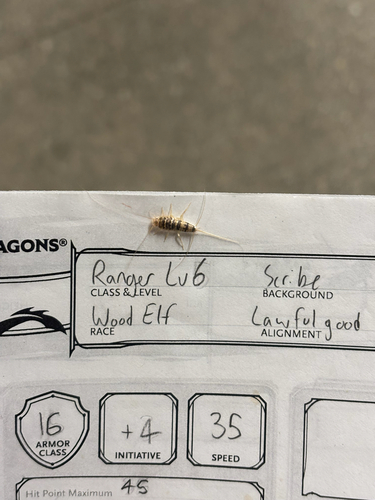 AGONS®
Ranger Lv6 Scribe
CLASS & LEVEL BACKGROUND
Wood Elf Lawful good
RACE ALIGNMENT
16 +4 35
ARMOR CLASS INITIATIVE SPEED
Hit Point Maximum 45